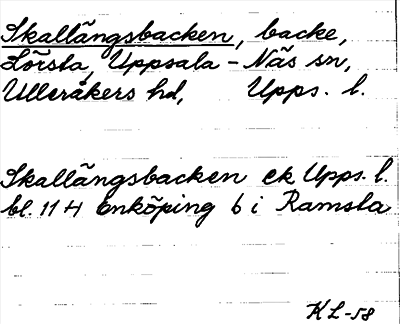 Skallängsbacken, backe,
Lörsta, Uppsala-Näs sn,
Ulleråkers hd, Upps. l.
Skallängsbacken ek Upps. l.
bl. 11 H Enköping 6 i Ramsta
KL-58